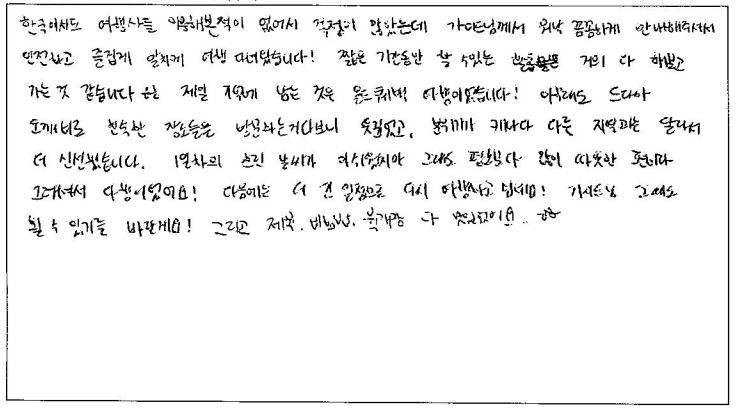 한국에서도 여행사를 이용해본적이 없어서 걱정이 많았는데 가이드님께서 워낙 꼼꼼하게 안내해주셔서
안전하고 즐겁게 알차게 여행 다녀왔습니다! 짧은 기간동안 할 수있는 거의 다 해보고
가는 것 같습니다 제일 기억에 남는 것은 올드퀘벡 여행이었습니다! 아무래도 드라마
도깨비로 친숙한 장소들을 방문하는거다보니 뜻깊었고, 분위기가 캐나다 다른 지역과는 달라서
더 신선했습니다. 1일차의 흐린 날씨가 아쉬웠지만 그래도 평소보다 많이 따뜻한 편이라
그러셔서 다행이었어요! 다음에는 더 긴 일정으로 다시 여행하고 싶네요! 가이드님 그때도
뵐 수 있기를 바랄게요! 그리고 제육, 비빔밥, 육개장 다 맛있었어요..